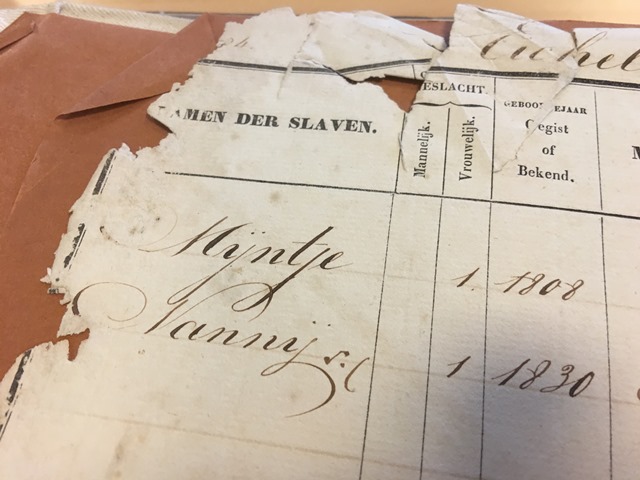 Eichel
AMEN DER SLAVEN.
ESLACHT.
Mannelijk.
Vrouwelijk.
GEBOORTEJAAR
Gegist
of
Bekend.
M
Mijntje 1. 1808
Nannij 1 1830